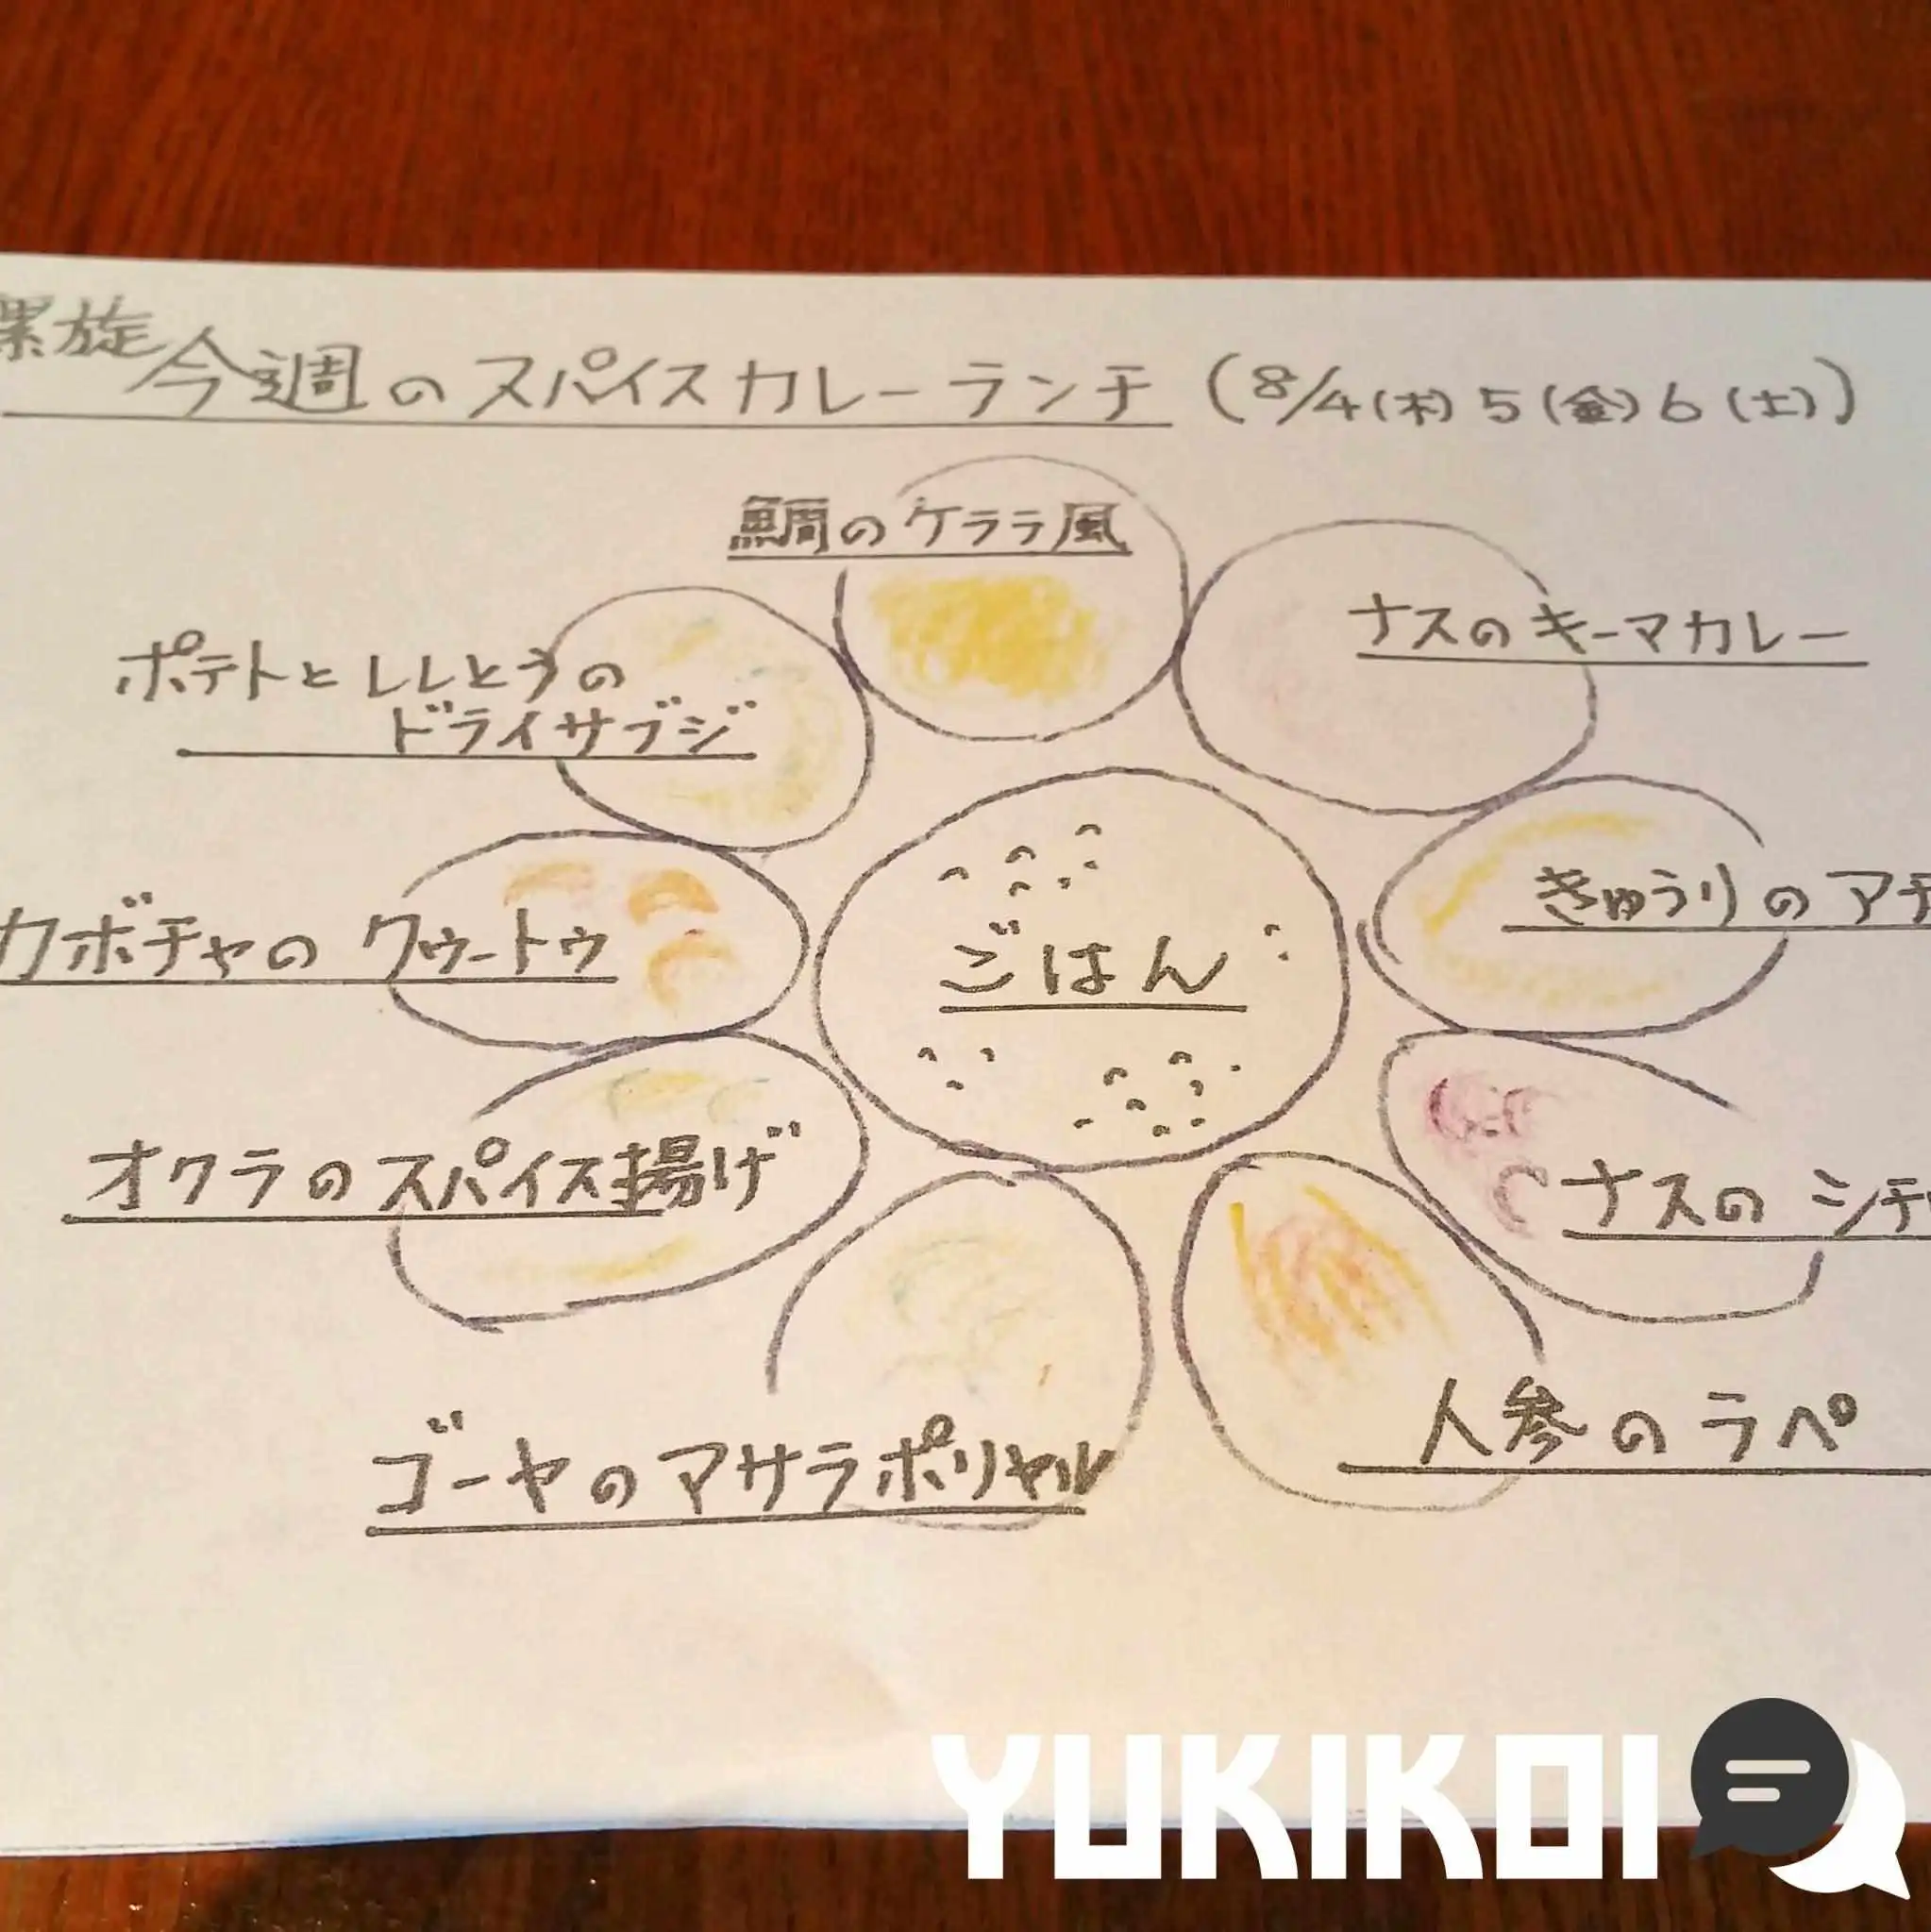 螺旋
今週のスパイスカレーランチ (8/4(木) 5(金) 6(土))
鯛のケララ風
ナスのキーマカレー
ポテトとししとうの
ドライサブジ
きゅうりのアチ
カボチャのクゥートゥ
ごはん
オクラのスパイス揚げ
ナスのシチ
人参のラペ
ゴーヤのマサラポリヤル
YUKIKOI